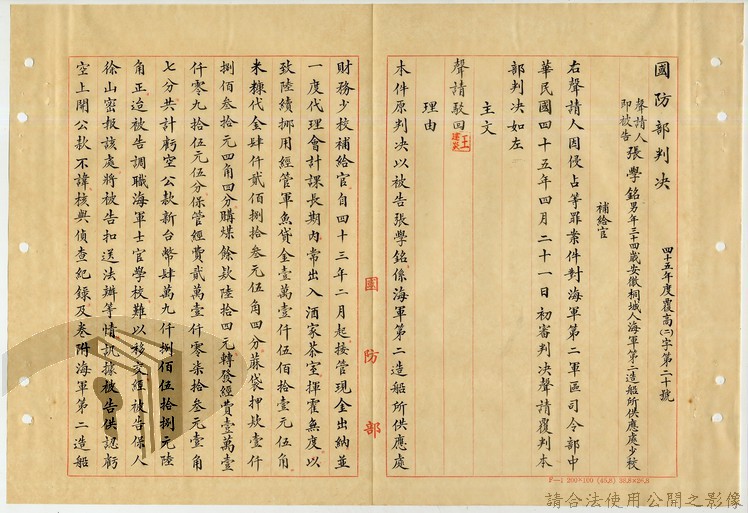 國防部判決
四十五年度覆高(二)字第二十號
聲請人
即被告
張學銘 男年三十四歲安徽桐城人海軍第二造船所供應處少校
補給官
右聲請人因侵占等罪案件對海軍第二軍區司令部中
華民國四十五年四月二十一日初審判決聲請覆判本
部判決如左
主文
聲請駁回
理由
本件原判決以被告張學銘係海軍第二造船所供應處
國防部
財務少校補給官自四十三年二月起接管現金出納並
一度代理會計課長期內常出入酒家茶室揮霍無度以
致陸續挪用經管軍魚貸金壹萬壹仟伍佰拾壹元伍角
米糠代金肆仟貳佰捌拾叁元伍角四分蔴袋押欵壹仟
捌佰叁拾元四角四分購煤餘欵陸拾四元轉發經費壹萬壹
仟零九拾伍元伍分保管經費貳萬壹仟零柒拾叁元壹角
七分共計虧空公款新台幣肆萬九仟捌佰伍拾捌元陸
角正迨被告調職海軍士官學校難以移交經被告保人
徐山密报該處將被告扣送法辦等情訊據被告供認虧
空上開公款不諱核與偵查紀錄及卷附海軍第二造船
F—1 200×100 (45.8) 38.8×26.8
請合法使用公開之影像